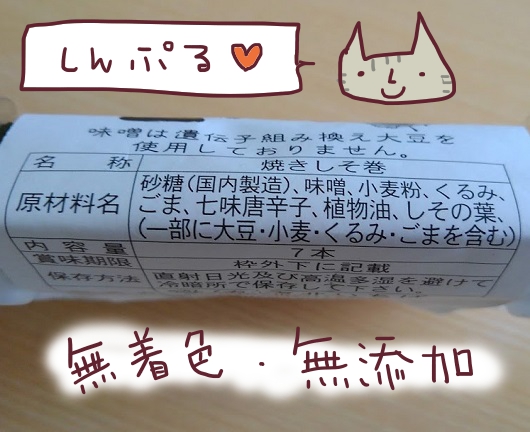 しんぷる
味噌は遺伝子組み換え大豆を
使用しておりません。
名称 焼きしそ巻
原材料名 砂糖(国内製造)、味噌、小麦粉、くるみ、
ごま、七味唐辛子、植物油、しその葉、
(一部に大豆・小麦・くるみ・ごまを含む)
内容量 7本
賞味期限 枠外下に記載
保存方法 直射日光及び高温多湿を避けて
冷暗所で保存して下さい。
無着色・無添加